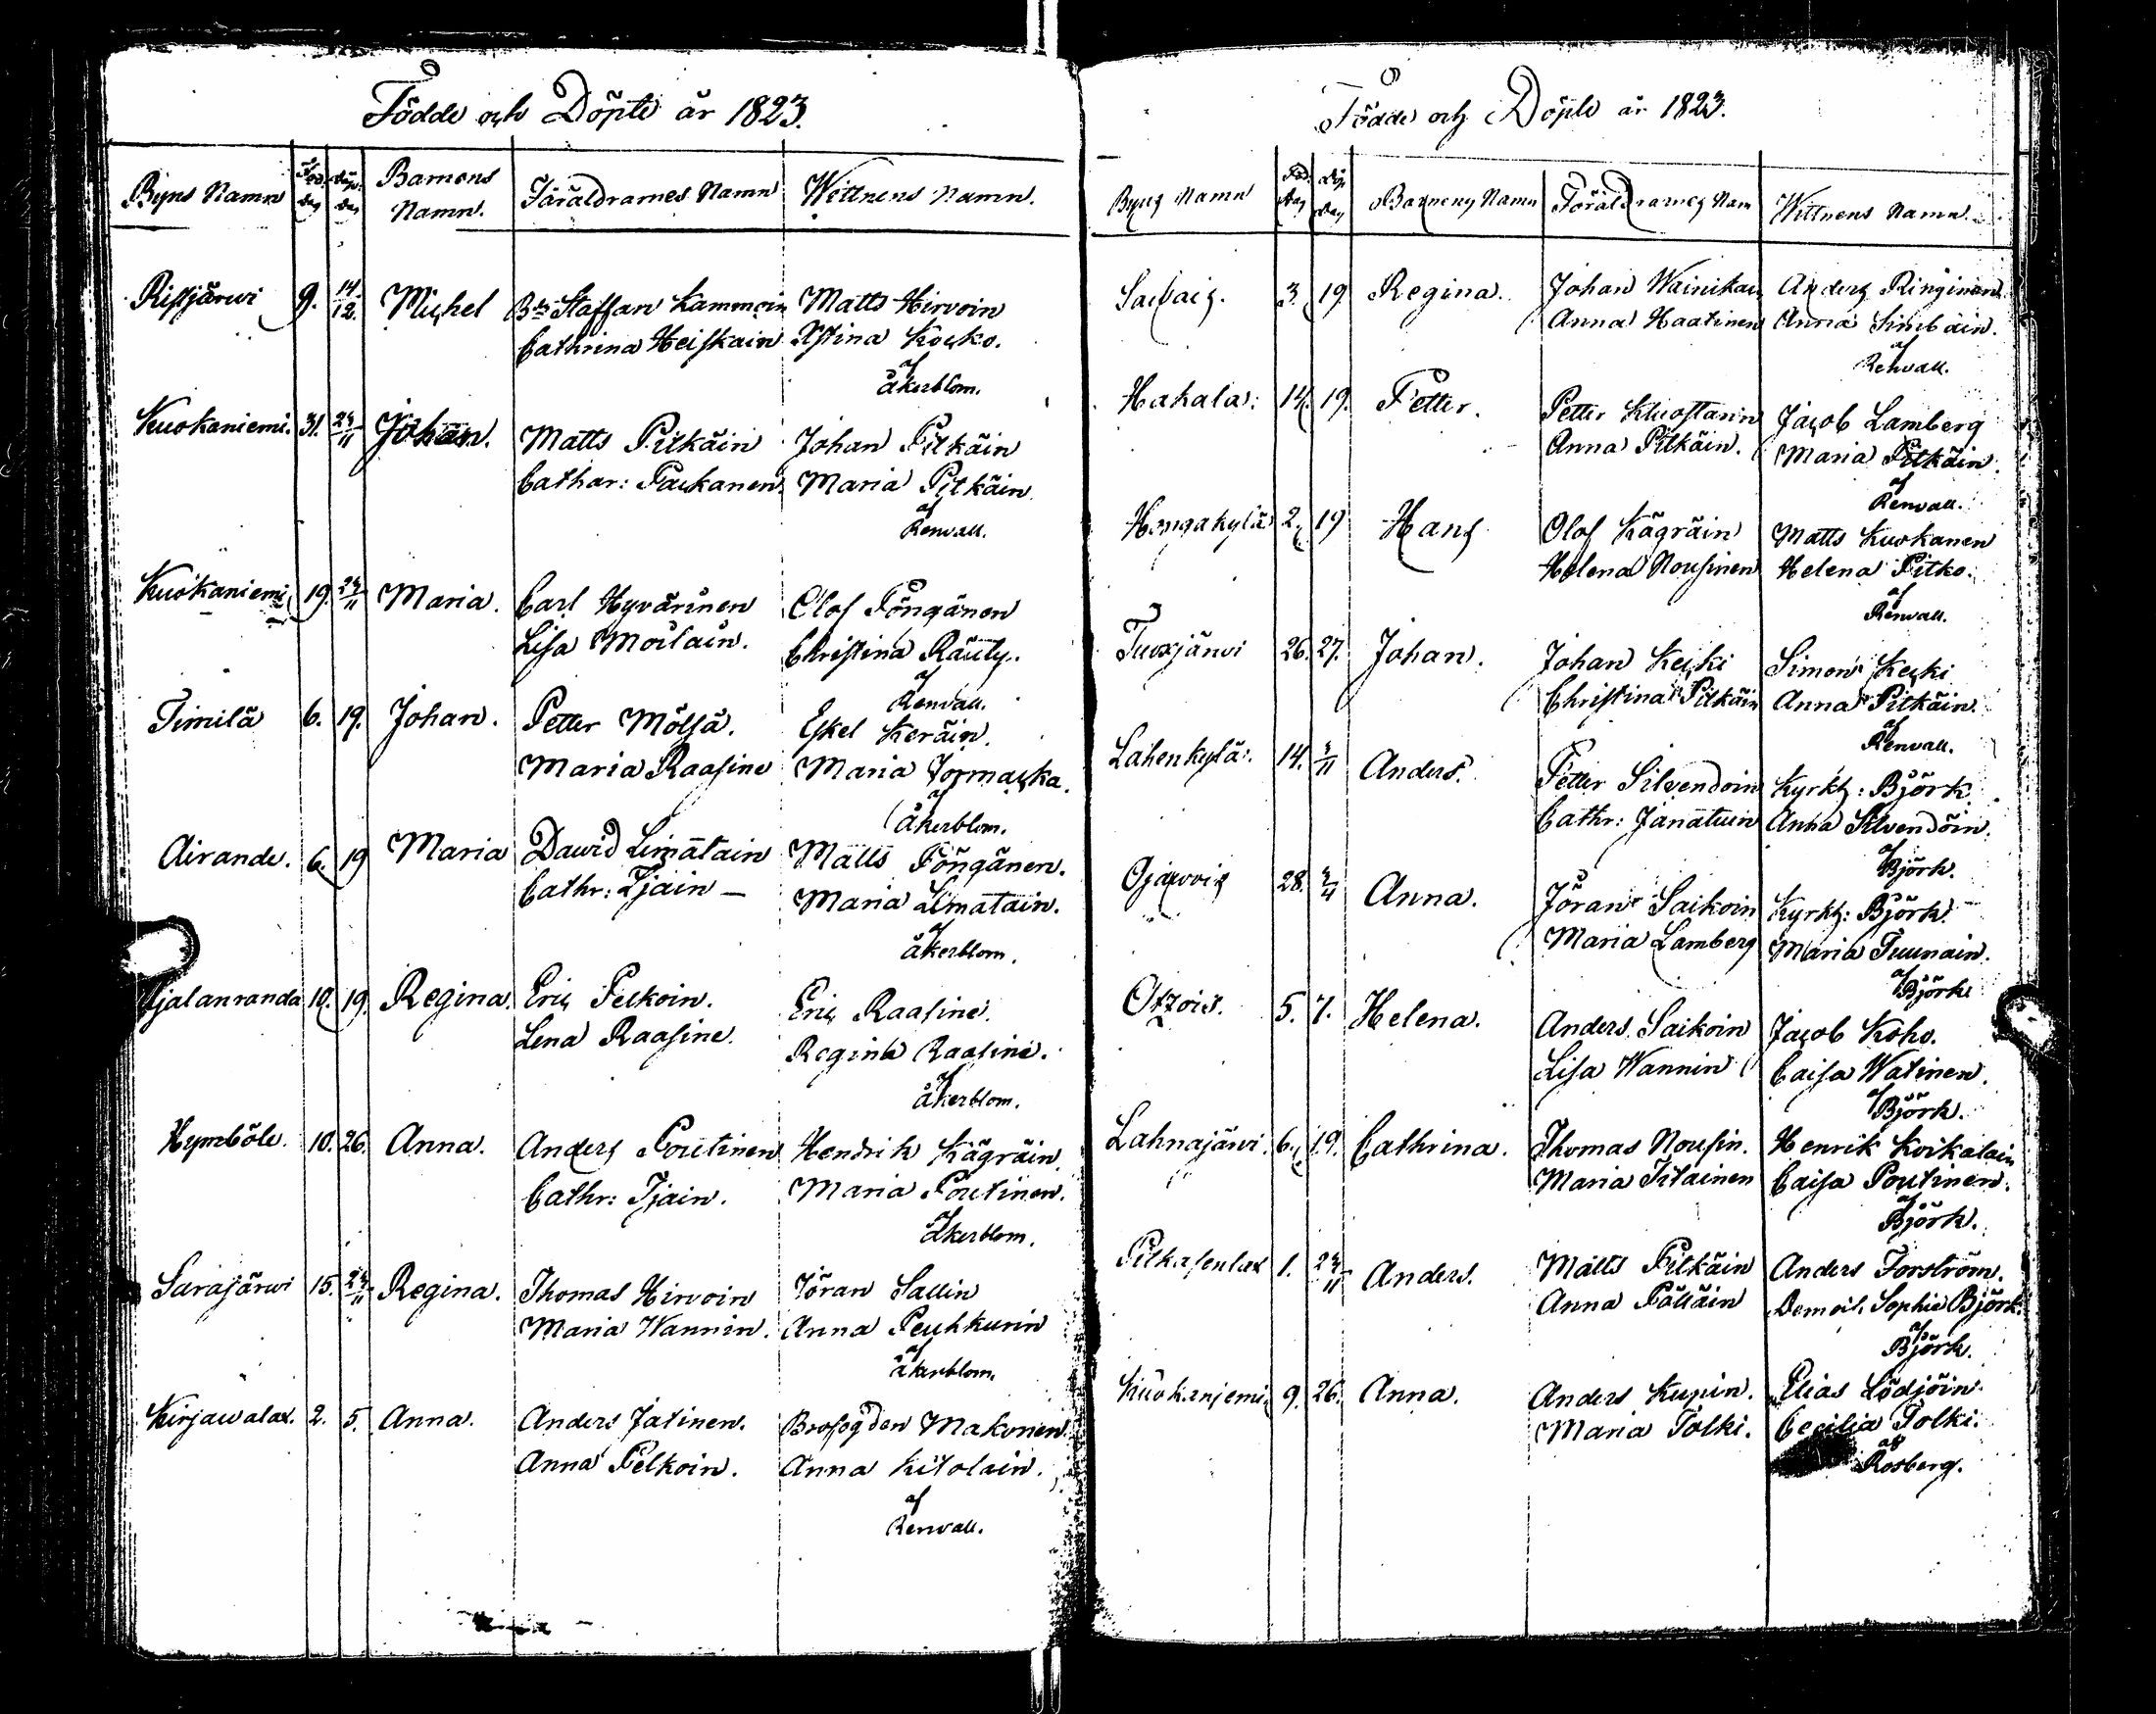 Födde och Döpte år 1823.
Byns Namn Föd. dag Döp. dag Barnens Namn. Föräldrarnes Namn Wittnens Namn.
Ristjärwi 9. 14/12. Michel Bde Staffan Kammoin Matts Hirvoin
Cathrina Heiskain Stina Kocko.
af
Åkerblom.
Kuokaniemi. 31. 23/11 Johan. Matts Pitkäin Johan Pitkäin
Cathar: Packanen. Maria Pitkäin
af
Renvall.
Kuokaniemi 19. 23/11 Maria. Carl Hyvärinen Olof Pöngänen
Lisa Moilain. Christina Räuty.
af
Renvall.
Timilä 6. 19. Johan. Petter Mölsä. Eskel Keräin.
Maria Raasine Maria Jormacka.
af
Åkerblom.
Airande. 6. 19 Maria Dawid Limatain Matts Pöngänen.
Cathr: Ijäin — Maria Limatain.
af
Åkerblom.
Ojalanranda 10. 19. Regina. Eric Pelkoin. Eric Raasine.
Lena Raasine. Regina Raasine.
af
Åkerblom.
Hymböle. 10. 26. Anna. Anders Poutinen Hendrik Kägräin.
Cathr: Ijäin. Maria Poutinen.
af
Åkerblom.
Sarajärwi 15. 23/11 Regina. Thomas Hirvoin Jöran Sallin
Maria Wannin. Anna Peuhkurin
af
Åkerblom.
Kirjawalax. 2. 5. Anna. Anders Jatinen. Brofogden Makonen.
Anna Pelkoin. Anna Kitolain.
af
Renvall.
Födde och Döpte år 1823.
Byns Namn Föd. dag Döp dag Barnens Namn Föräldrarnes Nam Wittnens Namn.
3. 19 Regina. Johan Wainikain Anders Ringinen
Anna Haatinen Anna Simbäin.
af
Renvall.
Hakala: 14. 19. Petter. Petter Kluostarin Jacob Lamberg
Anna Pitkäin. Maria Pitkäin.
af
Renvall.
Hongakylä 2. 19 Hans Olof Kägräin Matts Kuokanen
Helena Nousinen Helena Pitko.
af
Renvall.
Tuoxjärwi 26. 27. Johan. Johan Kecki Simon Kecki
Christina Pitkäin Anna Pitkäin.
af
Renvall.
Lahenkylä: 14. Anders. Petter Silvendoin Kyrkh: Björk.
Cathr: Janatuin Anna Silvendoin.
af
Björk.
28. Anna. Jöran Saikoin Kyrkh: Björk.
Maria Lamberg Maria Tuunain.
af
Björk.
Otzois. 5. 7. Helena. Anders Saikoin Jacob Koho.
Lisa Wannin Caisa Watinen.
af
Björk.
Lahnajärwi. 6. 19. Cathrina. Thomas Nousin. Henrik Koikalain
Maria Titainen Caisa Poutinen.
af
Björk.
Pitkasenlax 1. 23/11 Anders. Matts Pitkäin Anders Forström.
Anna Pölläin Demois. Sophia Björk.
af
Björk.
Kuokaniemi 9. 26. Anna. Anders Kupin. Elias Lödjöin.
Maria Tolki. Cecilia Tolki.
af
Rosberg.